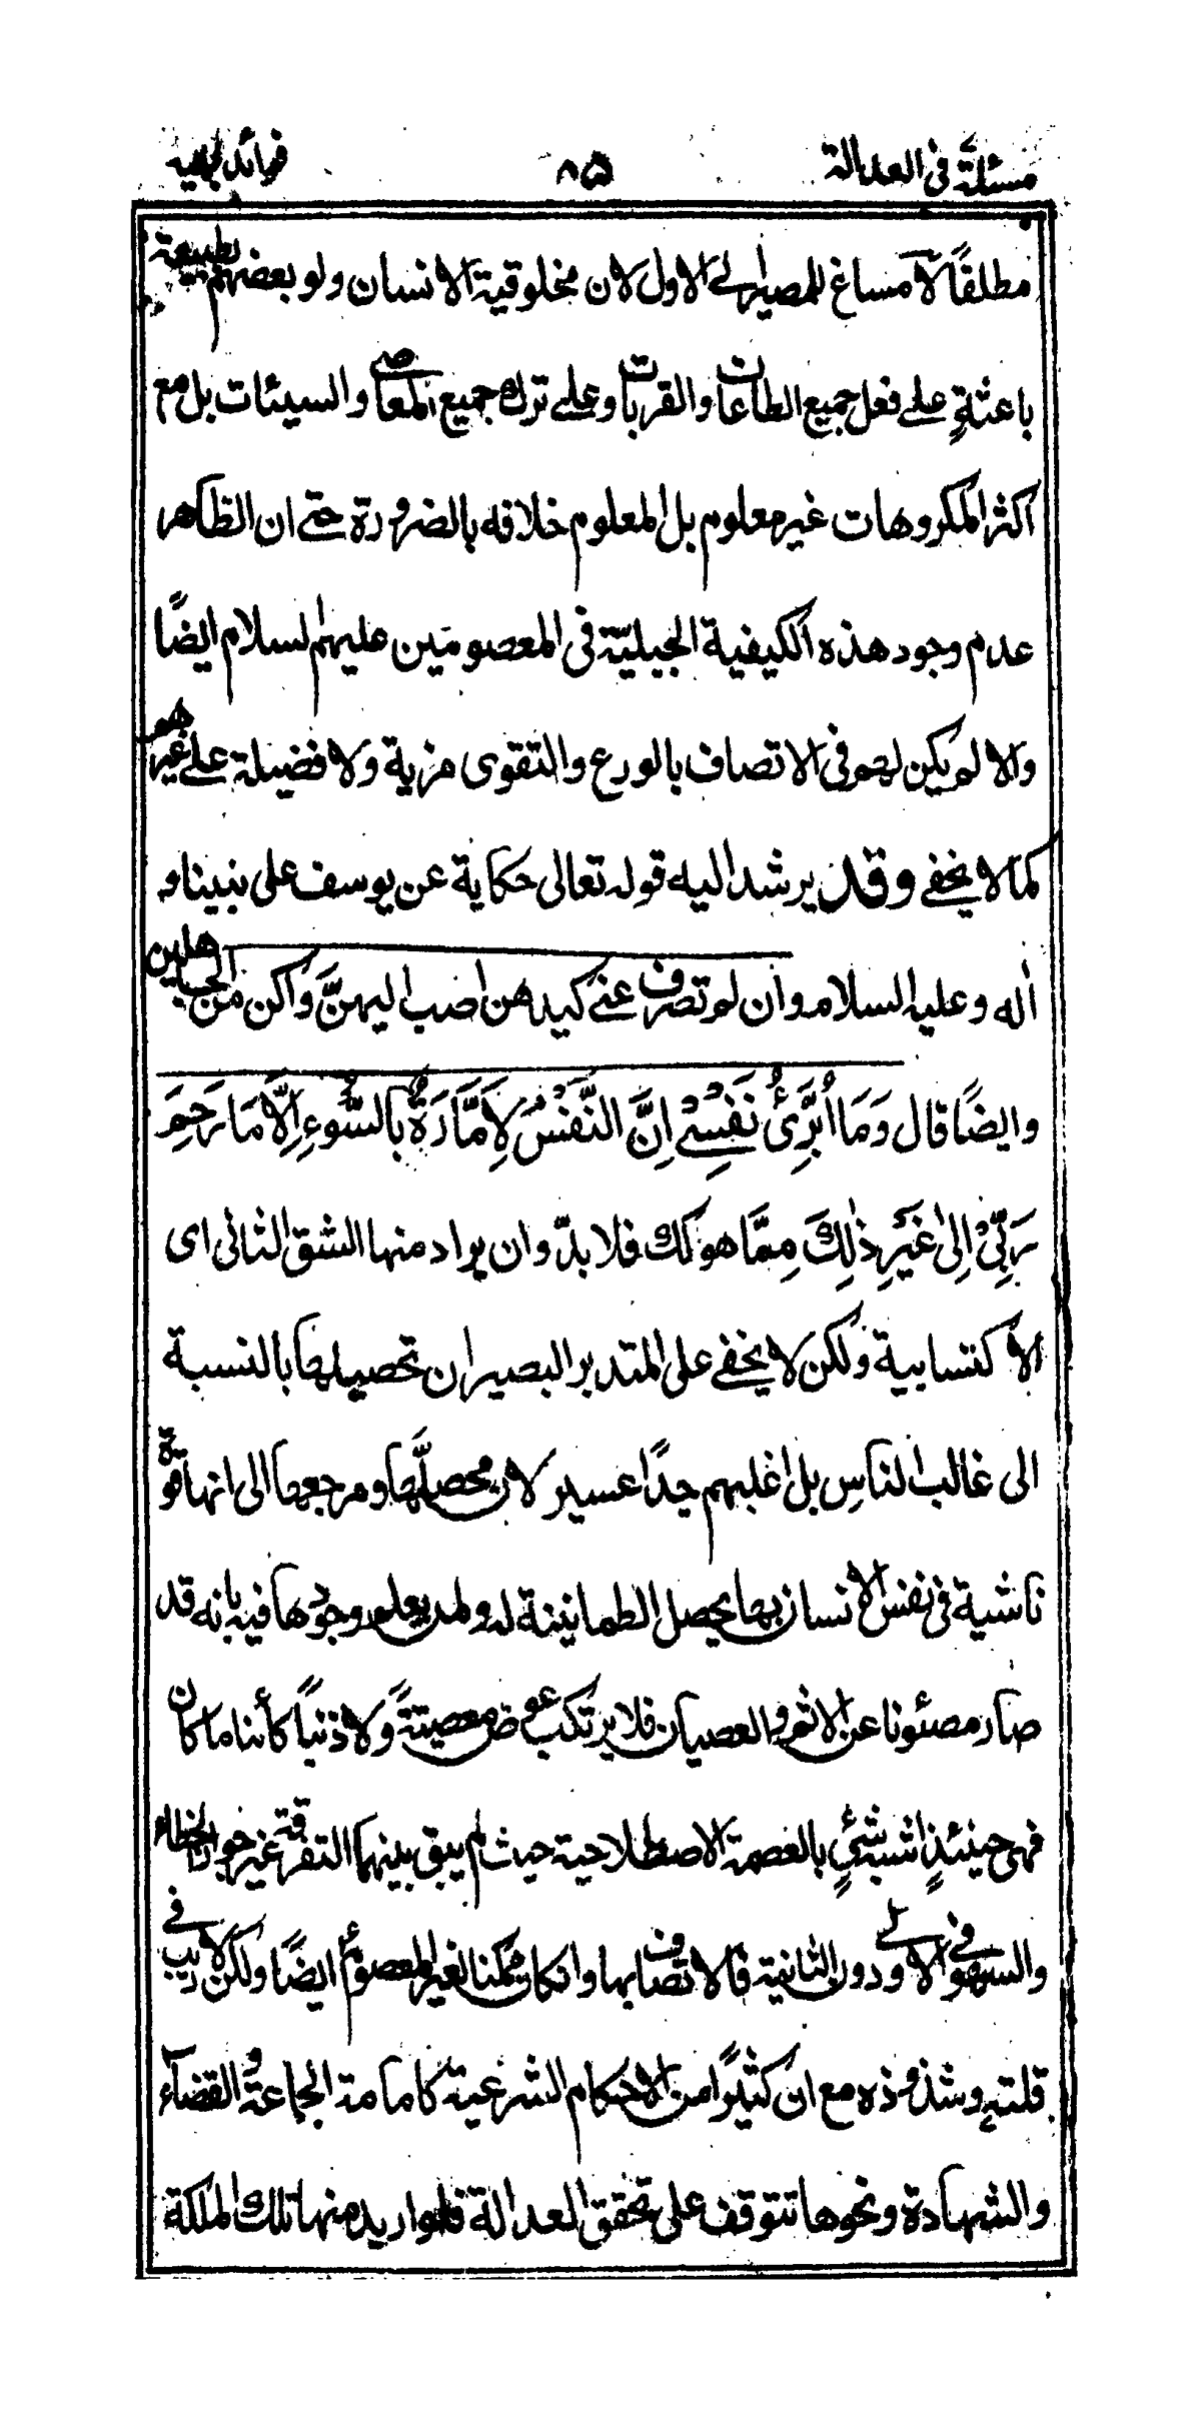 مسئلة في العدالة ٨٥ فرائد بهية
مطلقًا لا مساغ للمصير الى الاول لان مخلوقية الانسان ولو بعضهم بطبيعة
باعثةٍ على فعل جميع الطاعات والقربات وعلى ترك جميع المعاصى والسيئات بل مع
اكثر المكروهات غير معلوم بل المعلوم خلافه بالضرورة حتى ان الظاهر
عدم وجود هذه الكيفية الجبليّة فى المعصومين عليهم السلام ايضًا
والا لم يكن لهم فى الاتصاف بالورع والتقوى مزية ولا فضيلة على غيرهم
كما لا يخفى وقد يرشد اليه قوله تعالى حكاية عن يوسف على نبينا و
اٰله وعليه السلام وان لم تصرف عنى كيدهن اصب اليهنَّ واكن من الجاهلين
وايضًا قال وَمَا اُبَرِّئُ نَفْسِىْ اِنَّ النَّفْسَ لَاَمَّارَةٌ بِالسُّوءِ اِلَّا مَا رَحِمَ
رَبِّىْ اِلىٰ غَيْرِ ذٰلِكَ مِمَّا هو كك فلا بدّ وان يراد منها الشق الثانى اى
الاكتسابية ولكن لا يخفى على المتدبر البصير ان تحصيلها بالنسبة
الى غالب الناس بل اغلبهم جدًا عسير لان محصلَّها ومرجعها الى انها قوة
ناشية فى نفس الانسان بها يحصل الطمانينة له ولمن يعلم وجودها فيه بانه قد
صار مصئونا عن الاثم والعصيان فلا يرتكب عوض معصيتةً ولا ذنبًا كائنا ما كان
فهى حينئذٍ اشبه شئٍ بالعصمة الاصطلاحية حيث لم يبق بينهما التفرقة غير جواز الخطاء
والسهو فى الاولى دون الثانية فالاتصاف بها وان كان ممكنا لغير المعصوم ايضًا ولكن لا ريب فى
قلتهِ وشذوذه مع ان كثيرًا من الاحكام الشرعية كامامة الجماعة والقضآء
والشهادة ونحوها تتوقف على تحقق العدالة فلو اريد منها تلك الملكة